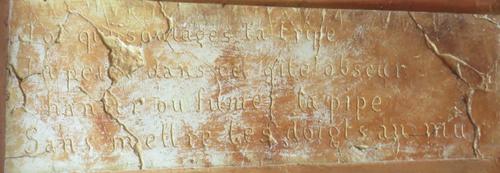 Toi qui soulages ta tripe
Tu peux dans ce gite obscur
Chanter ou fumer la pipe
Sans mettre tes doigts au mu